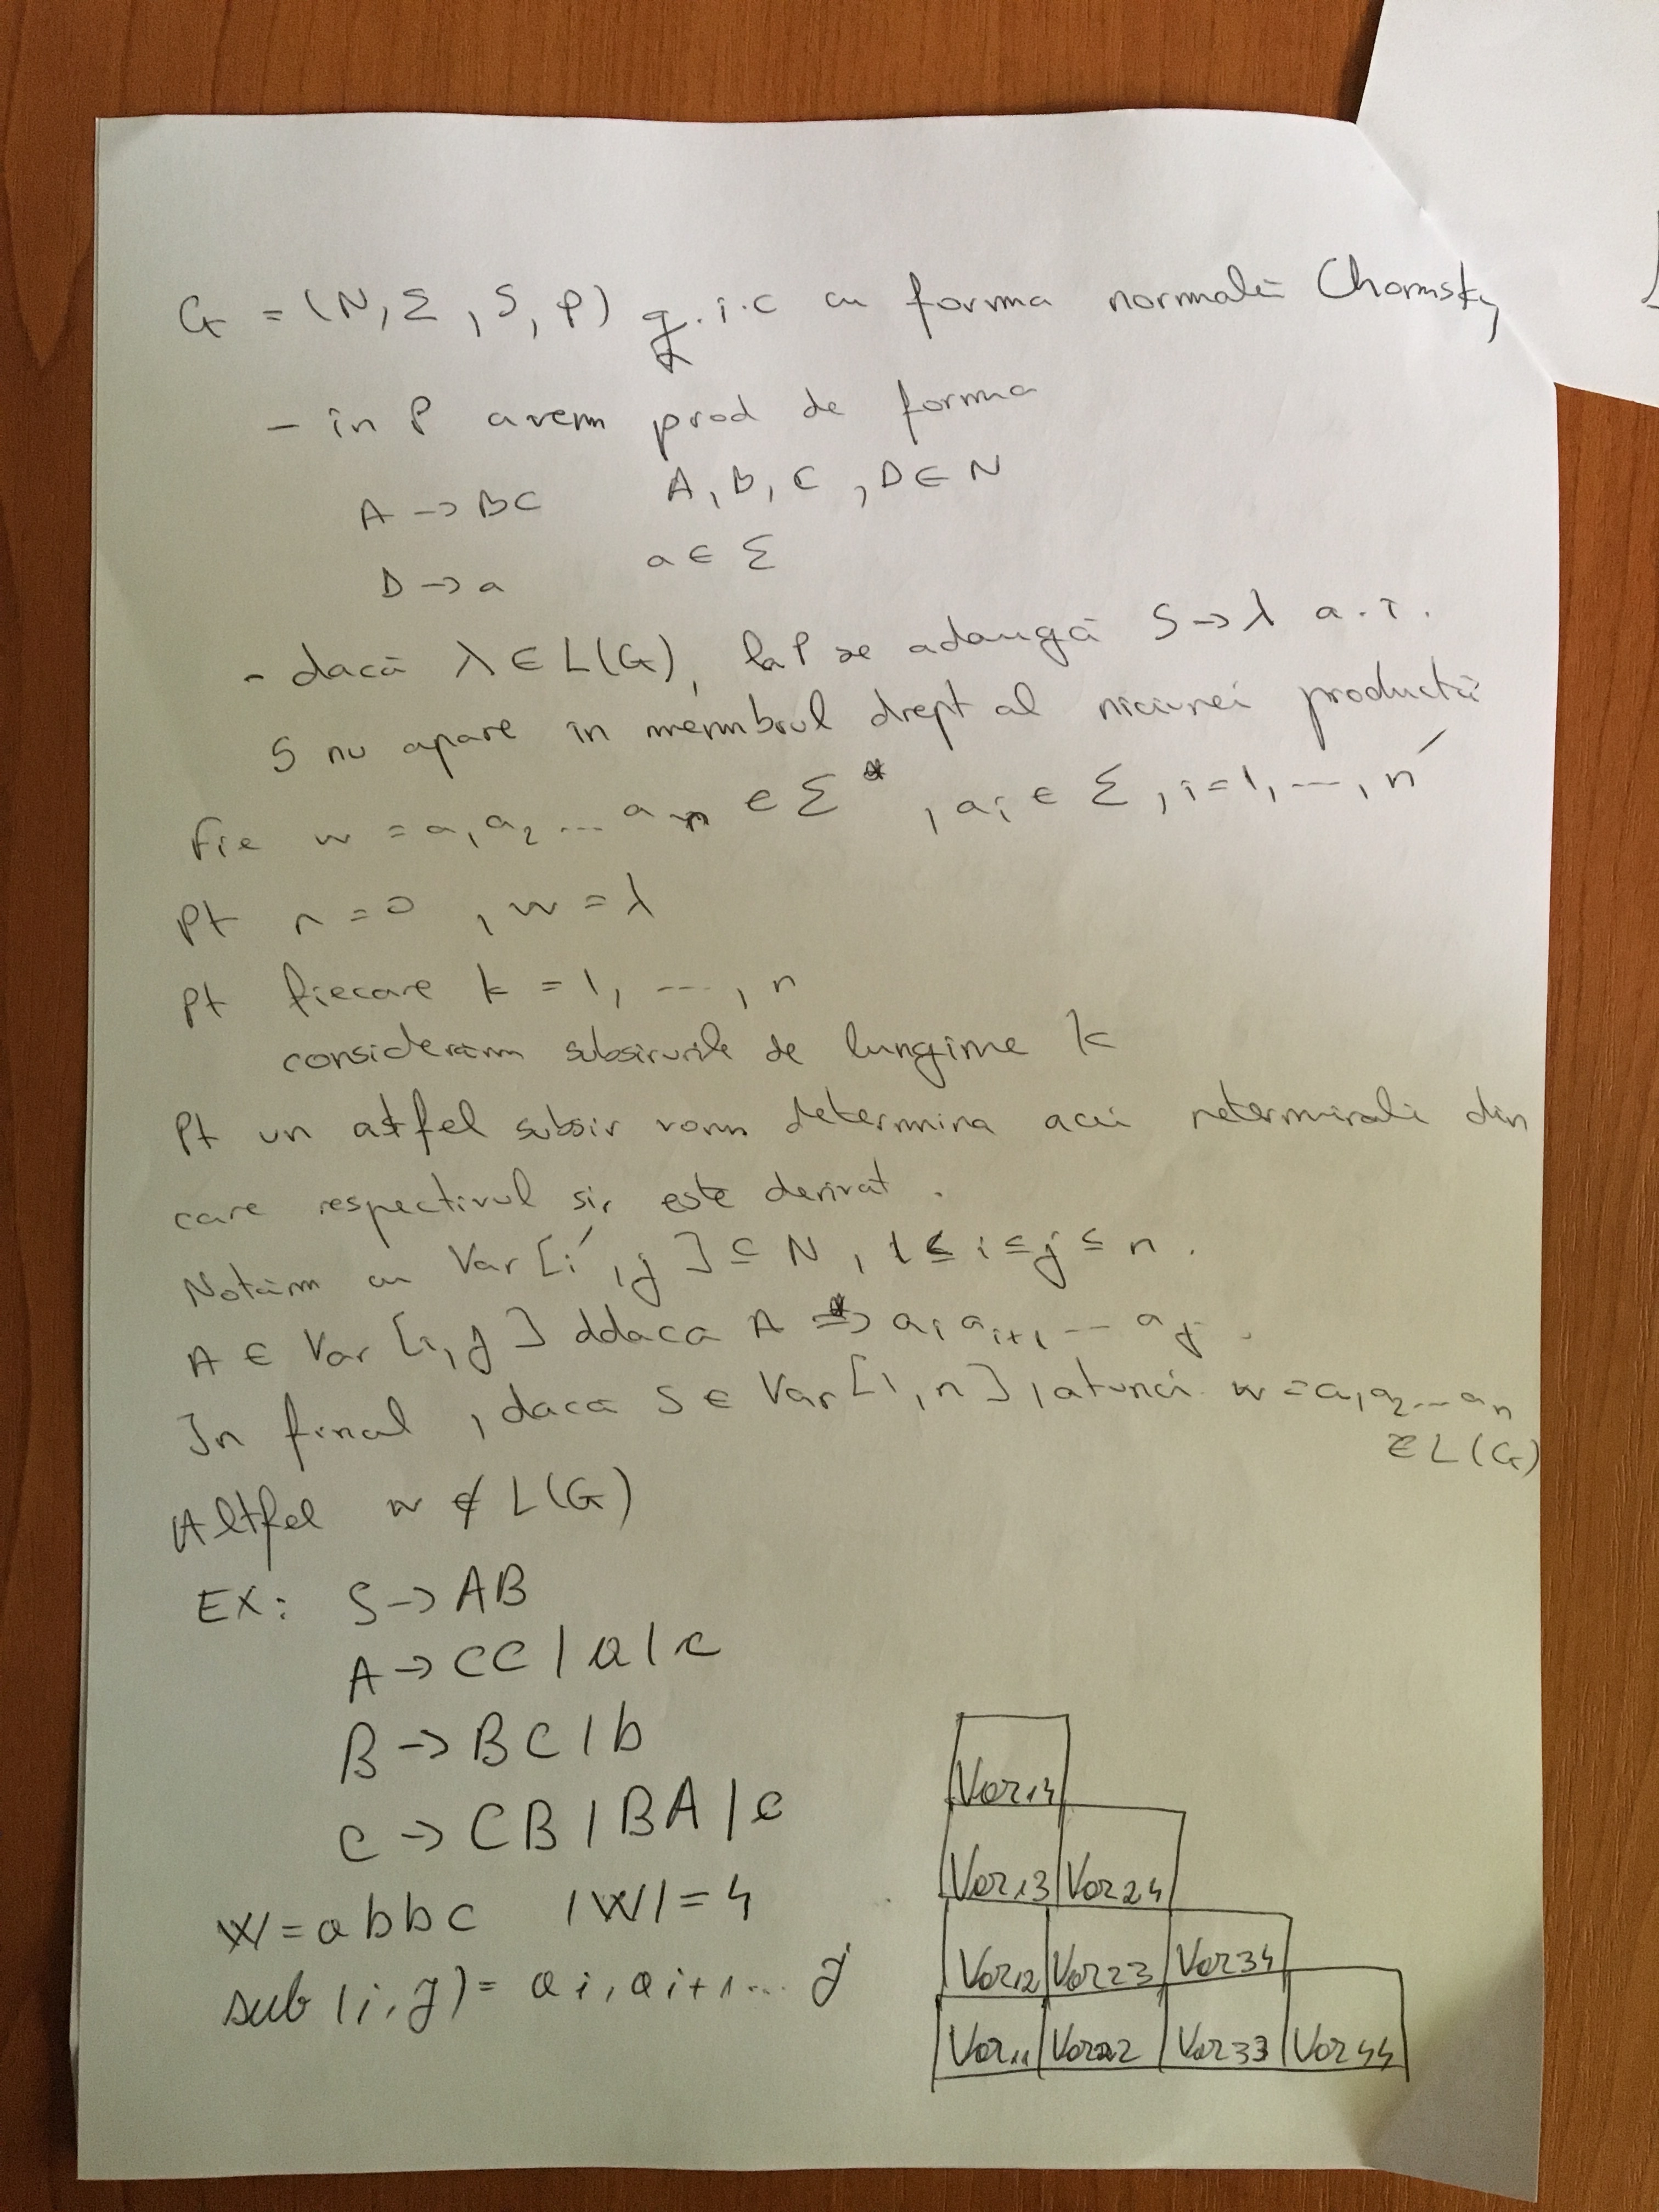 G = (N, Σ, S, P) g.i.c cu forma normală Chomsky
- în P avem prod de forma
A → BC A, B, C, D ∈ N
D → a a ∈ Σ
- dacă λ ∈ L(G), la P se adaugă S → λ a.î.
S nu apare în membrul drept al niciunei producții
Fie w = a₁a₂...aₙ ∈ Σ*, aᵢ ∈ Σ, i=1, ..., n
Pt n = 0, w = λ
Pt fiecare k = 1, ..., n
considerăm subsirurile de lungime k
Pt un astfel subsir vom determina acei neterminali din
care respectivul sir este derivat.
Notăm cu Var[i,j] ⊆ N, 1 ≤ i ≤ j ≤ n.
A ∈ Var[i,j] ddaca A ⇒* aᵢaᵢ₊₁...aⱼ.
In final, daca S ∈ Var[1,n], atunci w = a₁a₂...aₙ
∈ L(G)
Altfel w ∉ L(G)
EX: S → AB
A → CC | a | c
B → BC | b
C → CB | BA | c
W = abbc |W| = 4
sub(i,j) = aᵢ, aᵢ₊₁... j
Var₁₄
Var₁₃ Var₂₄
Var₁₂ Var₂₃ Var₃₄
Var₁₁ Var₂₂ Var₃₃ Var₄₄